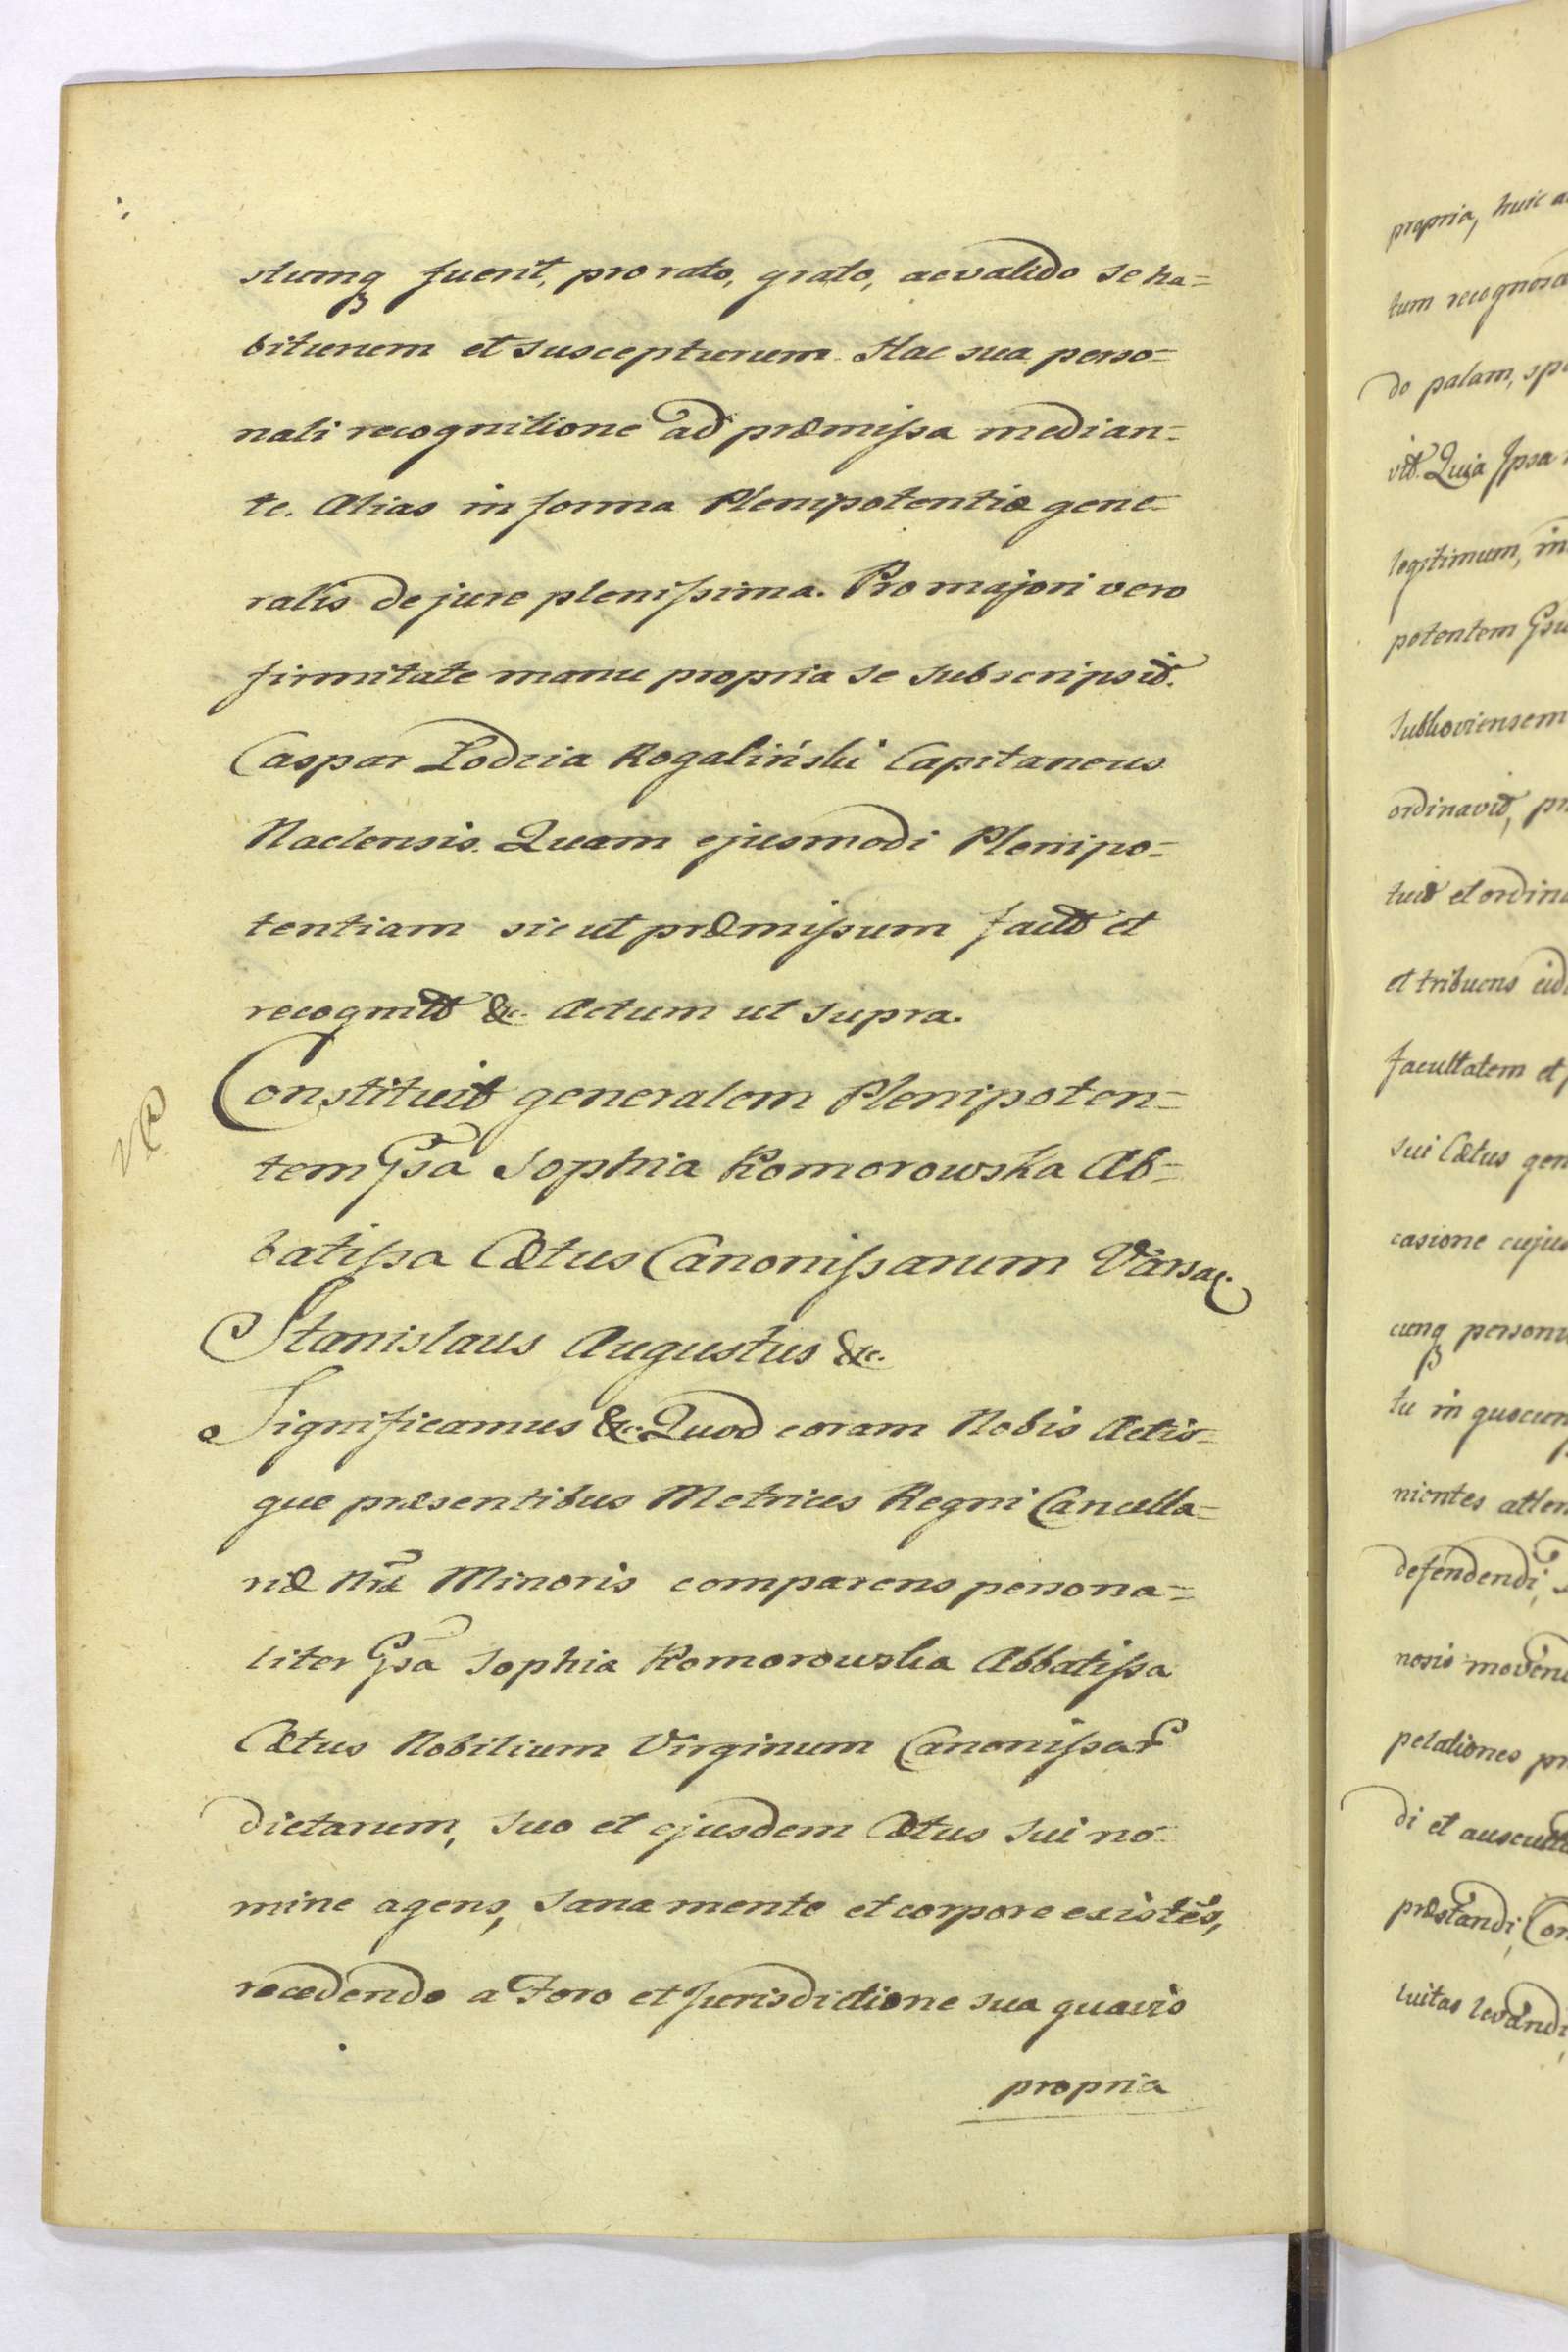 stumq fuerit, pro rato, grato, ac valido se ha=
biturum et suscepturum. Hac sua perso=
nali recognitione ad præmissa median=
te. Alias in forma Plenipotentiæ gene=
ralis de jure plenissima. Pro majori vero
firmitate manu propria se subscripsit.
Caspar Łodzia Rogaliński Capitaneus
Naclensis. Quam ejusmodi Plenipo=
tentiam sic ut præmissum facit et
recognit &c. Actum ut supra.
Constituit generalem Plenipoten=
tem Gsa Sophia Komorowska Ab=
batissa Cætus Canonissarum Varsa
Stanislaus Augustus &c.
Significamus &c. Quod coram Nobis Actis=
que præsentibus Metrices Regni Cancella=
riæ Nræ Minoris comparens persona=
liter Gsa Sophia Komorowska Abbatissa
Cætus Nobilium Virginum Canonissar
dictarum, suo et ejusdem Cætus sui no=
mine agens, sana mente et corpore existēs,
recedendo a Foro et Jurisdictione sua quavis
propria
propria, huic
tum
do palam,
vit. Quia Ipsa
legitimum, in
potentem
ordinavit,
tuit et
et tribuens
facultatem et
sui Cætus
casione
cunq
tu in
nientes
defendendi,
pelationes
di et
præstandi,
levandi